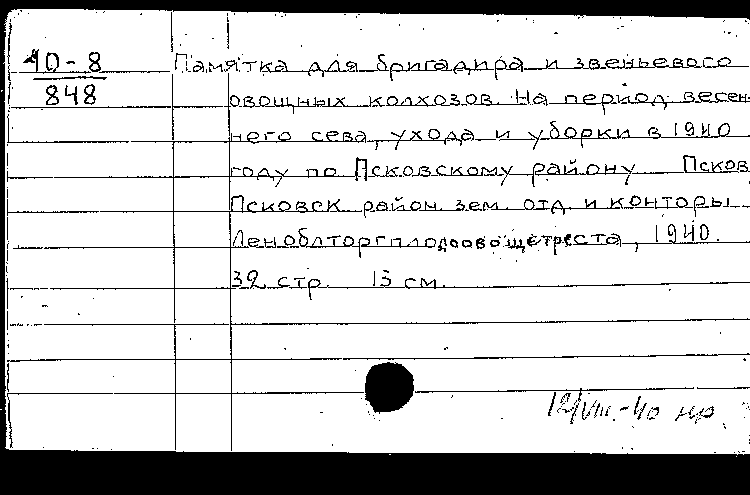 40-8
848
Памятка для бригадира и звеньевого
овощных колхозов. На период весен-
него сева, ухода и уборки в 1940
году по Псковскому району Псков
Псковск. район. зем. отд. и конторы
Леноблторгплодоовощетреста, 1940.
32 стр. 13 см.
12/VIII.-40